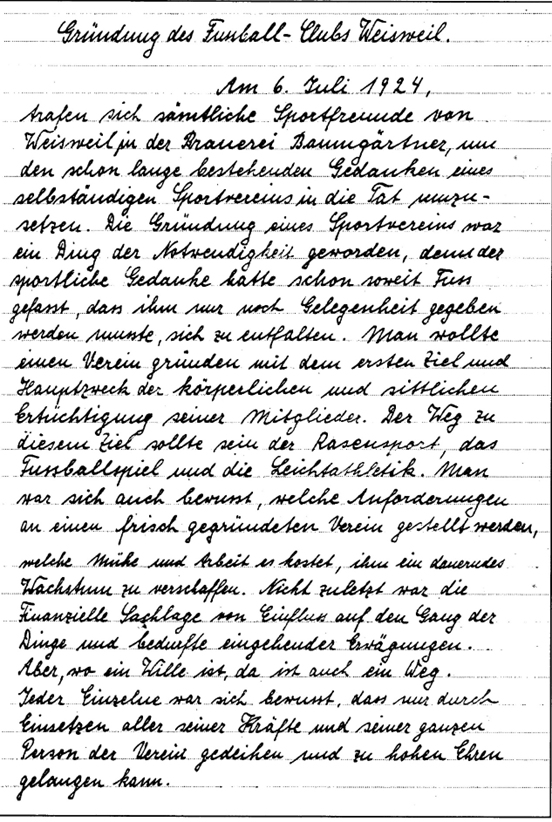 Gründung des Fussball-Clubs Weisweil.
Am 6. Juli 1924,
trafen sich sämtliche Sportfreunde von
Weisweil in der Brauerei Baumgärtner, um
den schon lange bestehenden Gedanken eines
selbständigen Sportvereins in die Tat umzu-
setzen. Die Gründung eines Sportvereins war
ein Ding der Notwendigkeit geworden, denn der
sportliche Gedanke hatte schon soweit Fuss
gefasst, dass ihm nur noch Gelegenheit gegeben
werden musste, sich zu entfalten. Man wollte
einen Verein gründen mit dem ersten Ziel und
Hauptzweck der körperlichen und sittlichen
Ertüchtigung seiner Mitglieder. Der Weg zu
diesem Ziel sollte sein der Rasensport, das
Fussballspiel und die Leichtathletik. Man
war sich auch bewusst, welche Anforderungen
an einen frisch gegründeten Verein gestellt werden,
welche Mühe und Arbeit es kostet, ihm ein dauerndes
Wachstum zu verschaffen. Nicht zuletzt war die
Finanzielle Sachlage von Einfluss auf den Gang der
Dinge und bedurfte eingehender Erwägungen.
Aber, wo ein Wille ist, da ist auch ein Weg.
Jeder Einzelne war sich bewusst, dass nur durch
Einsetzen aller seiner Kräfte und seiner ganzen
Person der Verein gedeihen und zu hohen Ehren
gelangen kann.